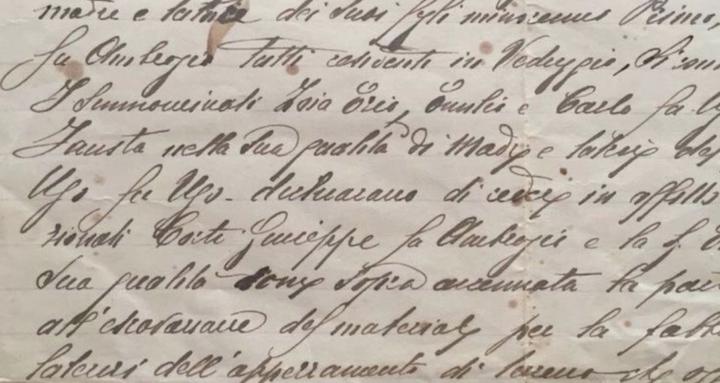 madre e tutrice dei suoi figli minorenni Primo,
fu Ambrogio tutti esistenti in Veduggio, si con
I summominati Isia Erio, Emilio e Carlo fu U
Fausta nella sua qualità di Madre e tutrice
Ugo fu Ugo dichiarano di cedere in affitto
zionati Conti Giuseppe fu Ambrogio e la
sua qualità come sopra accennata la par
all'escavazione dei materiali per la fab
laterizi dell'appezzamento di terreno che